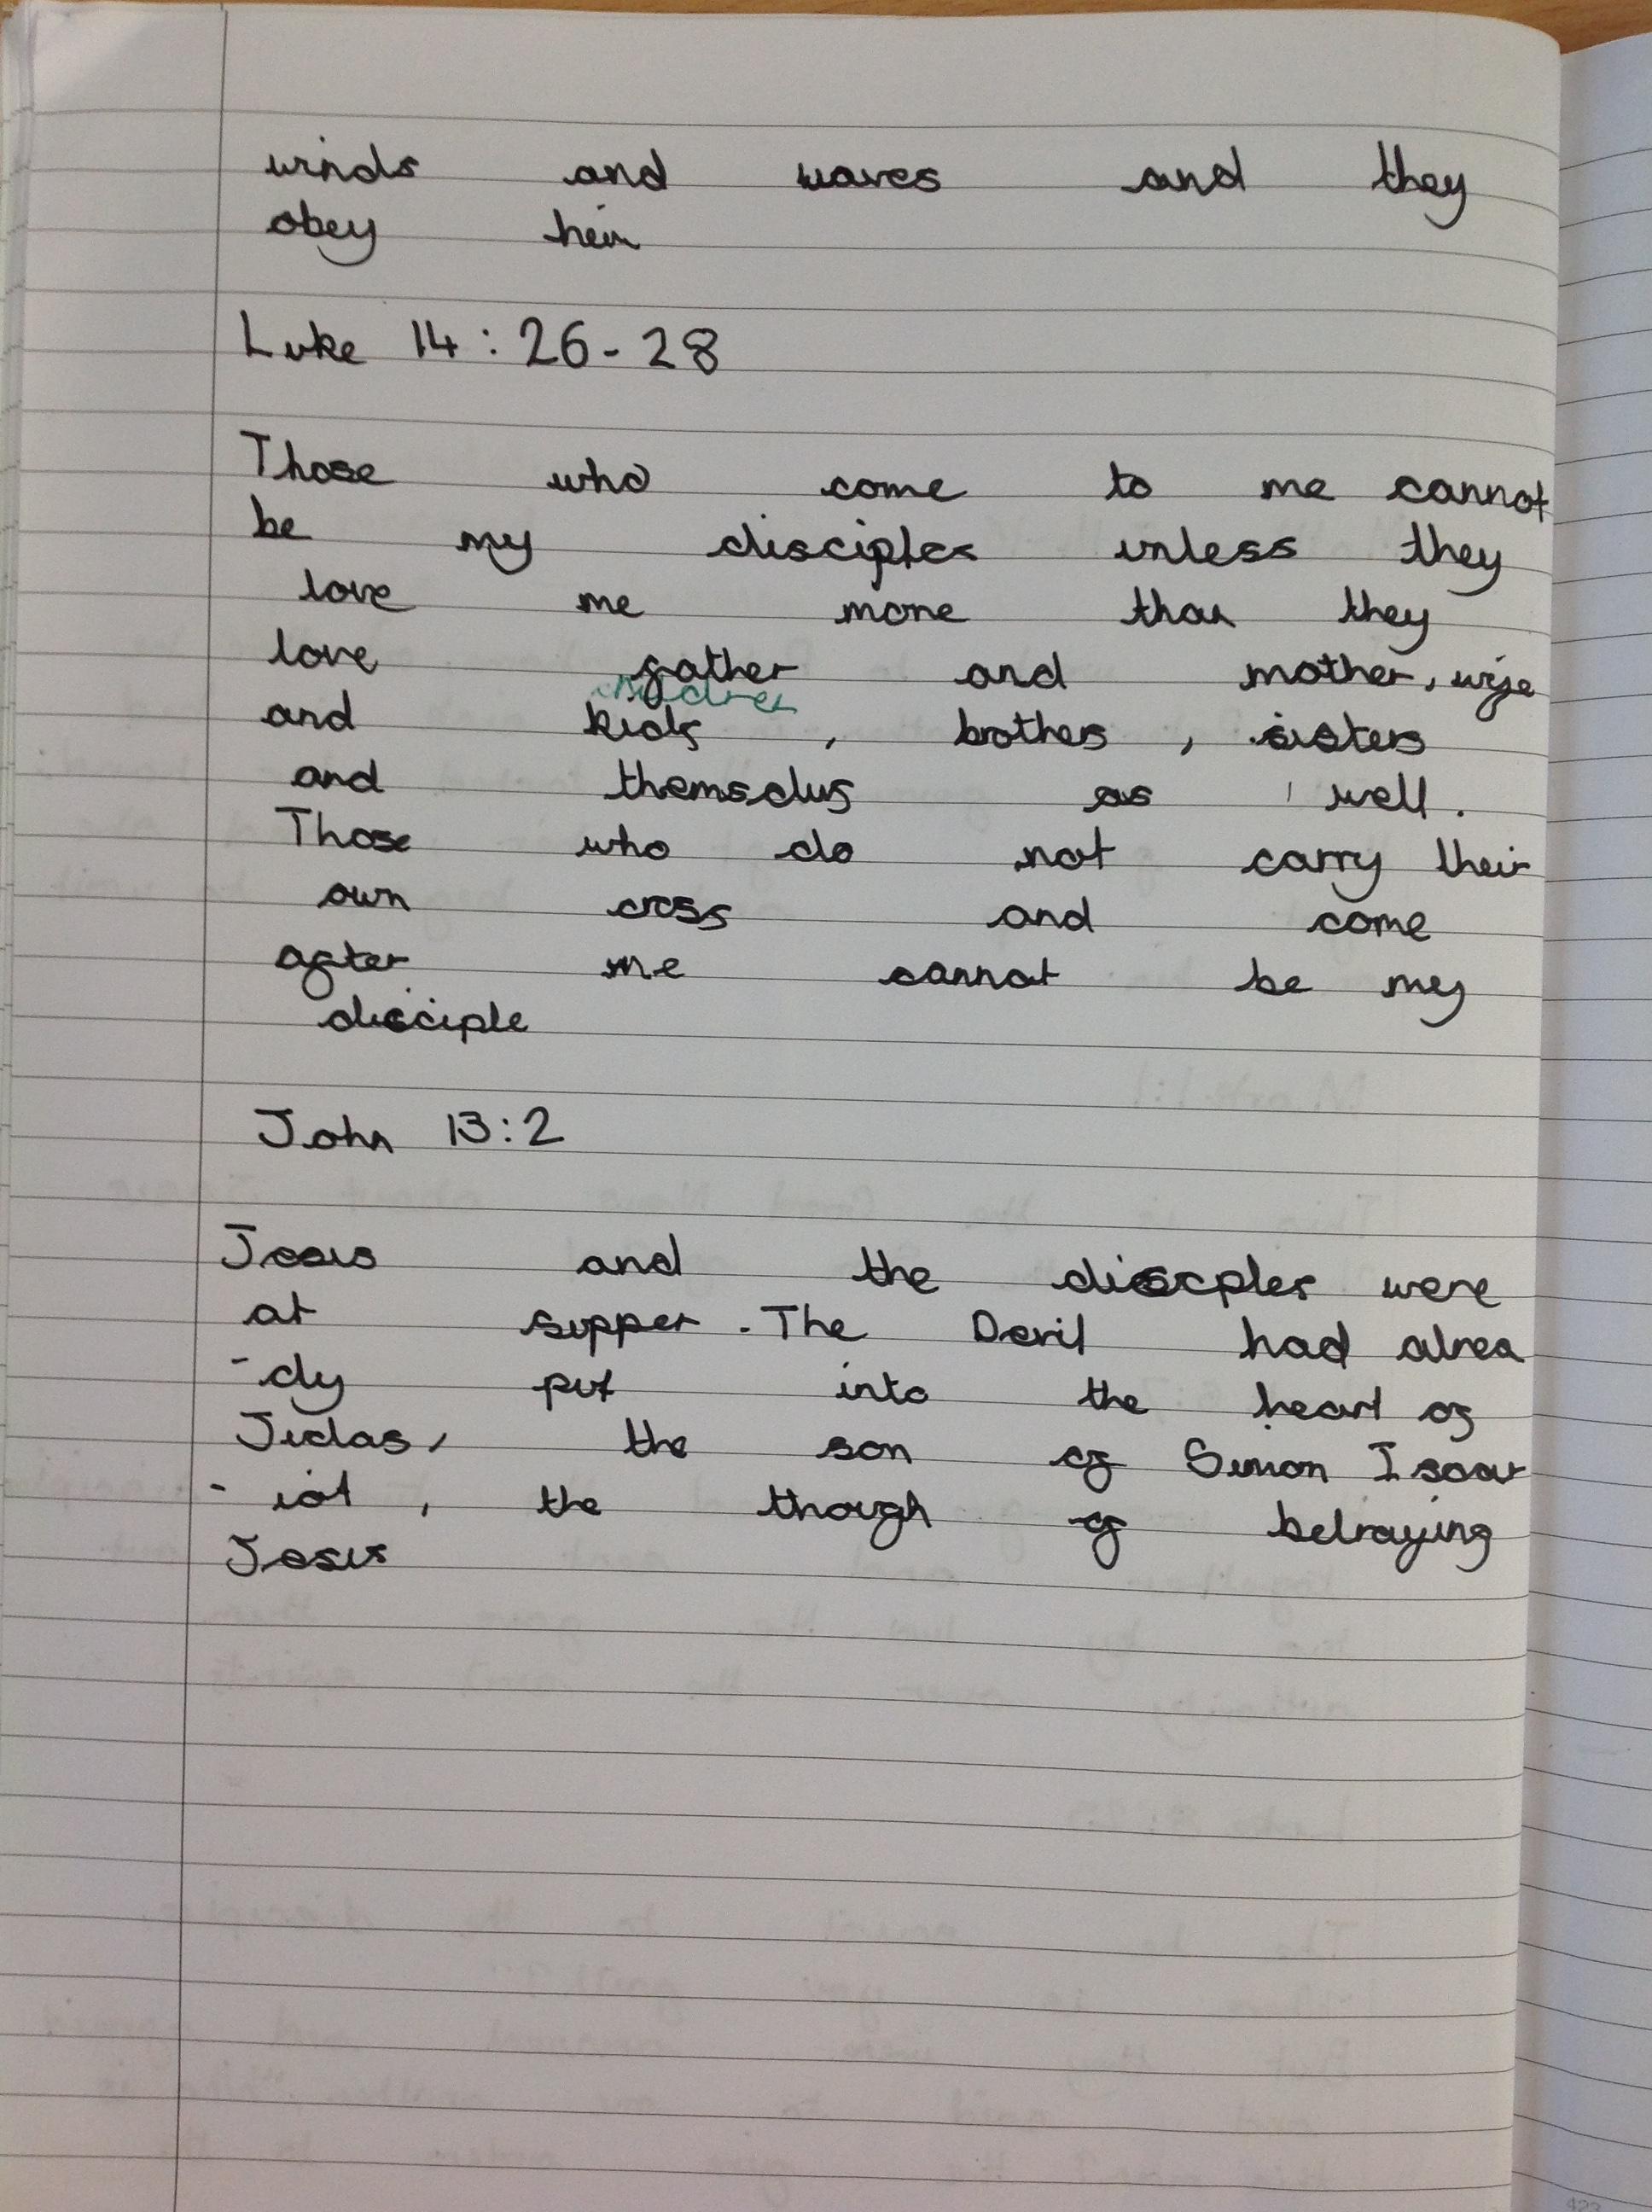 winds and waves and they
obey him
Luke 14:26-28
Those who come to me cannot
be my disciples unless they
love me more than they
love father and mother, wife
children
and kids, brothers, sisters
and themselvs as well.
Those who do not carry their
own cross and come
after me cannot be my
disciple
John 13:2
Jesus and the discples were
at supper. The Devil had alrea
-dy put into the heart of
Judas, the son of Simon Iscar
-iot, the though of betraying
Jesus